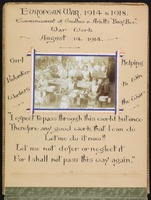 European War, 1914 to 1918.
Commencement of
War Work
August 14. 1914.
Girl
Helping
Volunteer
to Win
Workers
the War.
"I expect to pass through this world but once
Therefore any good work that I can do
Let me do it now!!
Let me not defer or neglect it
For I shall not pass this way again."